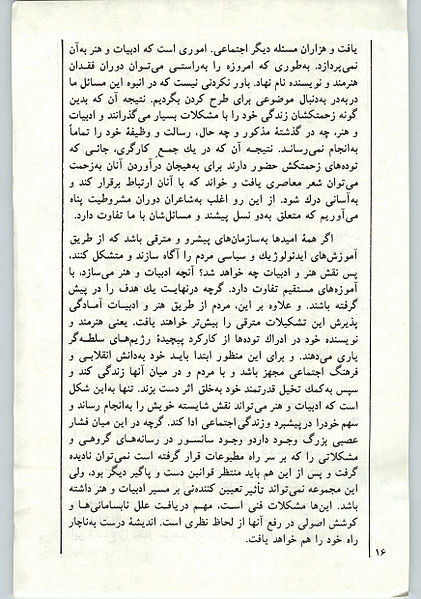 یافت و هزاران مسئله دیگر اجتماعی. اموری است که ادبیات و هنر به‌آن
نمی‌پردازد. به‌طوری که امروزه را به‌راستی می‌توان دوران فقدان
هنرمند و نویسنده نام نهاد. باور نکردنی نیست که در انبوه این مسائل ما
دربه‌در به‌دنبال موضوعی برای طرح کردن بگردیم. نتیجه آن که بدین
گونه زحمتکشان زندگی خود را با مشکلات بسیار می‌گذرانند و ادبیات
و هنر، چه در گذشتهٔ مذکور و چه حال، رسالت و وظیفهٔ خود را تماماً
به‌انجام نمی‌رسانـد. نتیجـه آن که در یك جمع کارگری، جائـی که
توده‌های زحمتکش حضور دارند برای به‌هیجان درآوردن آنان به‌زحمت
می‌توان شعر معاصری یافت و خواند که با آنان ارتباط برقرار کند و
به‌آسانی درك شود. از این رو اغلب به‌شاعران دوران مشروطیت پناه
می‌آوریم که متعلق به‌دو نسل پیشند و مسائل‌شان با ما تفاوت دارد.
اگر همهٔ امیدها به‌سازمان‌های پیشرو و مترقی باشد که از طریق
آموزش‌های ایدئولوژیك و سیاسی مردم را آگاه سازند و متشکل کنند،
پس نقش هنر و ادبیات چه خواهد شد؟ آنچه ادبیات و هنر می‌سازد، با
آموزه‌های مستقیم تفاوت دارد. گرچه درنهایت یك هدف را در پیش
گرفته باشند. و علاوه بر این، مردم از طریق هنر و ادبیـات آمـادگی
پذیرش این تشکیلات مترقی را بیش‌تر خواهند یافت. یعنی هنرمند و
نویسنده خود در ادراك توده‌ها از کارکرد پیچیدهٔ رژیم‌هـای سلطه‌گر
یاری می‌دهند. و برای این منظور ابتدا بایـد خود به‌دانش انقلابی و
فرهنگ اجتماعی مجهز باشد و با مردم و در میان آنها زندگی کند و
سپس به‌کمك تخیل قدرتمند خود به‌خلق اثر دست بزند. تنها به‌این شکل
است که ادبیات و هنر می‌تواند نقش شایسته خویش را به‌انجام رساند و
سهم خودرا درپیشبرد وزندگی اجتماعی ادا کند. گرچه در این میان فشار
عصبی بزرگ وجـود داردو وجـود سانسـور در رسانه‌هـای گروهـی و
مشکلاتی را که بر سر راه مطبوعات قرار گرفته است نمی‌توان نادیده
گرفت و پس از این هم باید منتظر قوانین دست و پاگیر دیگر بود، ولی
این مجموعه نمی‌تواند تأثیر تعیین کننده‌ئی بر مسیر ادبیات و هنر داشته
باشد. این‌ها مشکلات فنی اسـت، مهـم دریافـت علل نابسامانی‌هـا و
کوشش اصولی در رفع آنها از لحاظ نظری است. اندیشهٔ درست به‌ناچار
راه خود را هم خواهد یافت.
۱۶